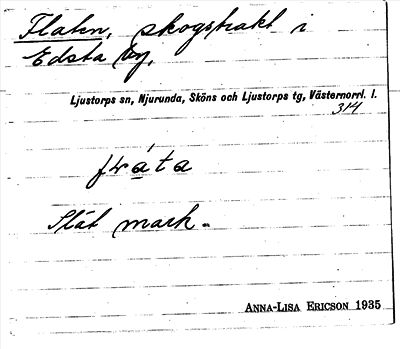 Flaten, skogstrakt i
Edsta by.
Ljustorps sn, Njurunda, Sköns och Ljustorps tg, Västernorrl. l.
314
Slät mark.
ANNA-LISA ERICSON 1935